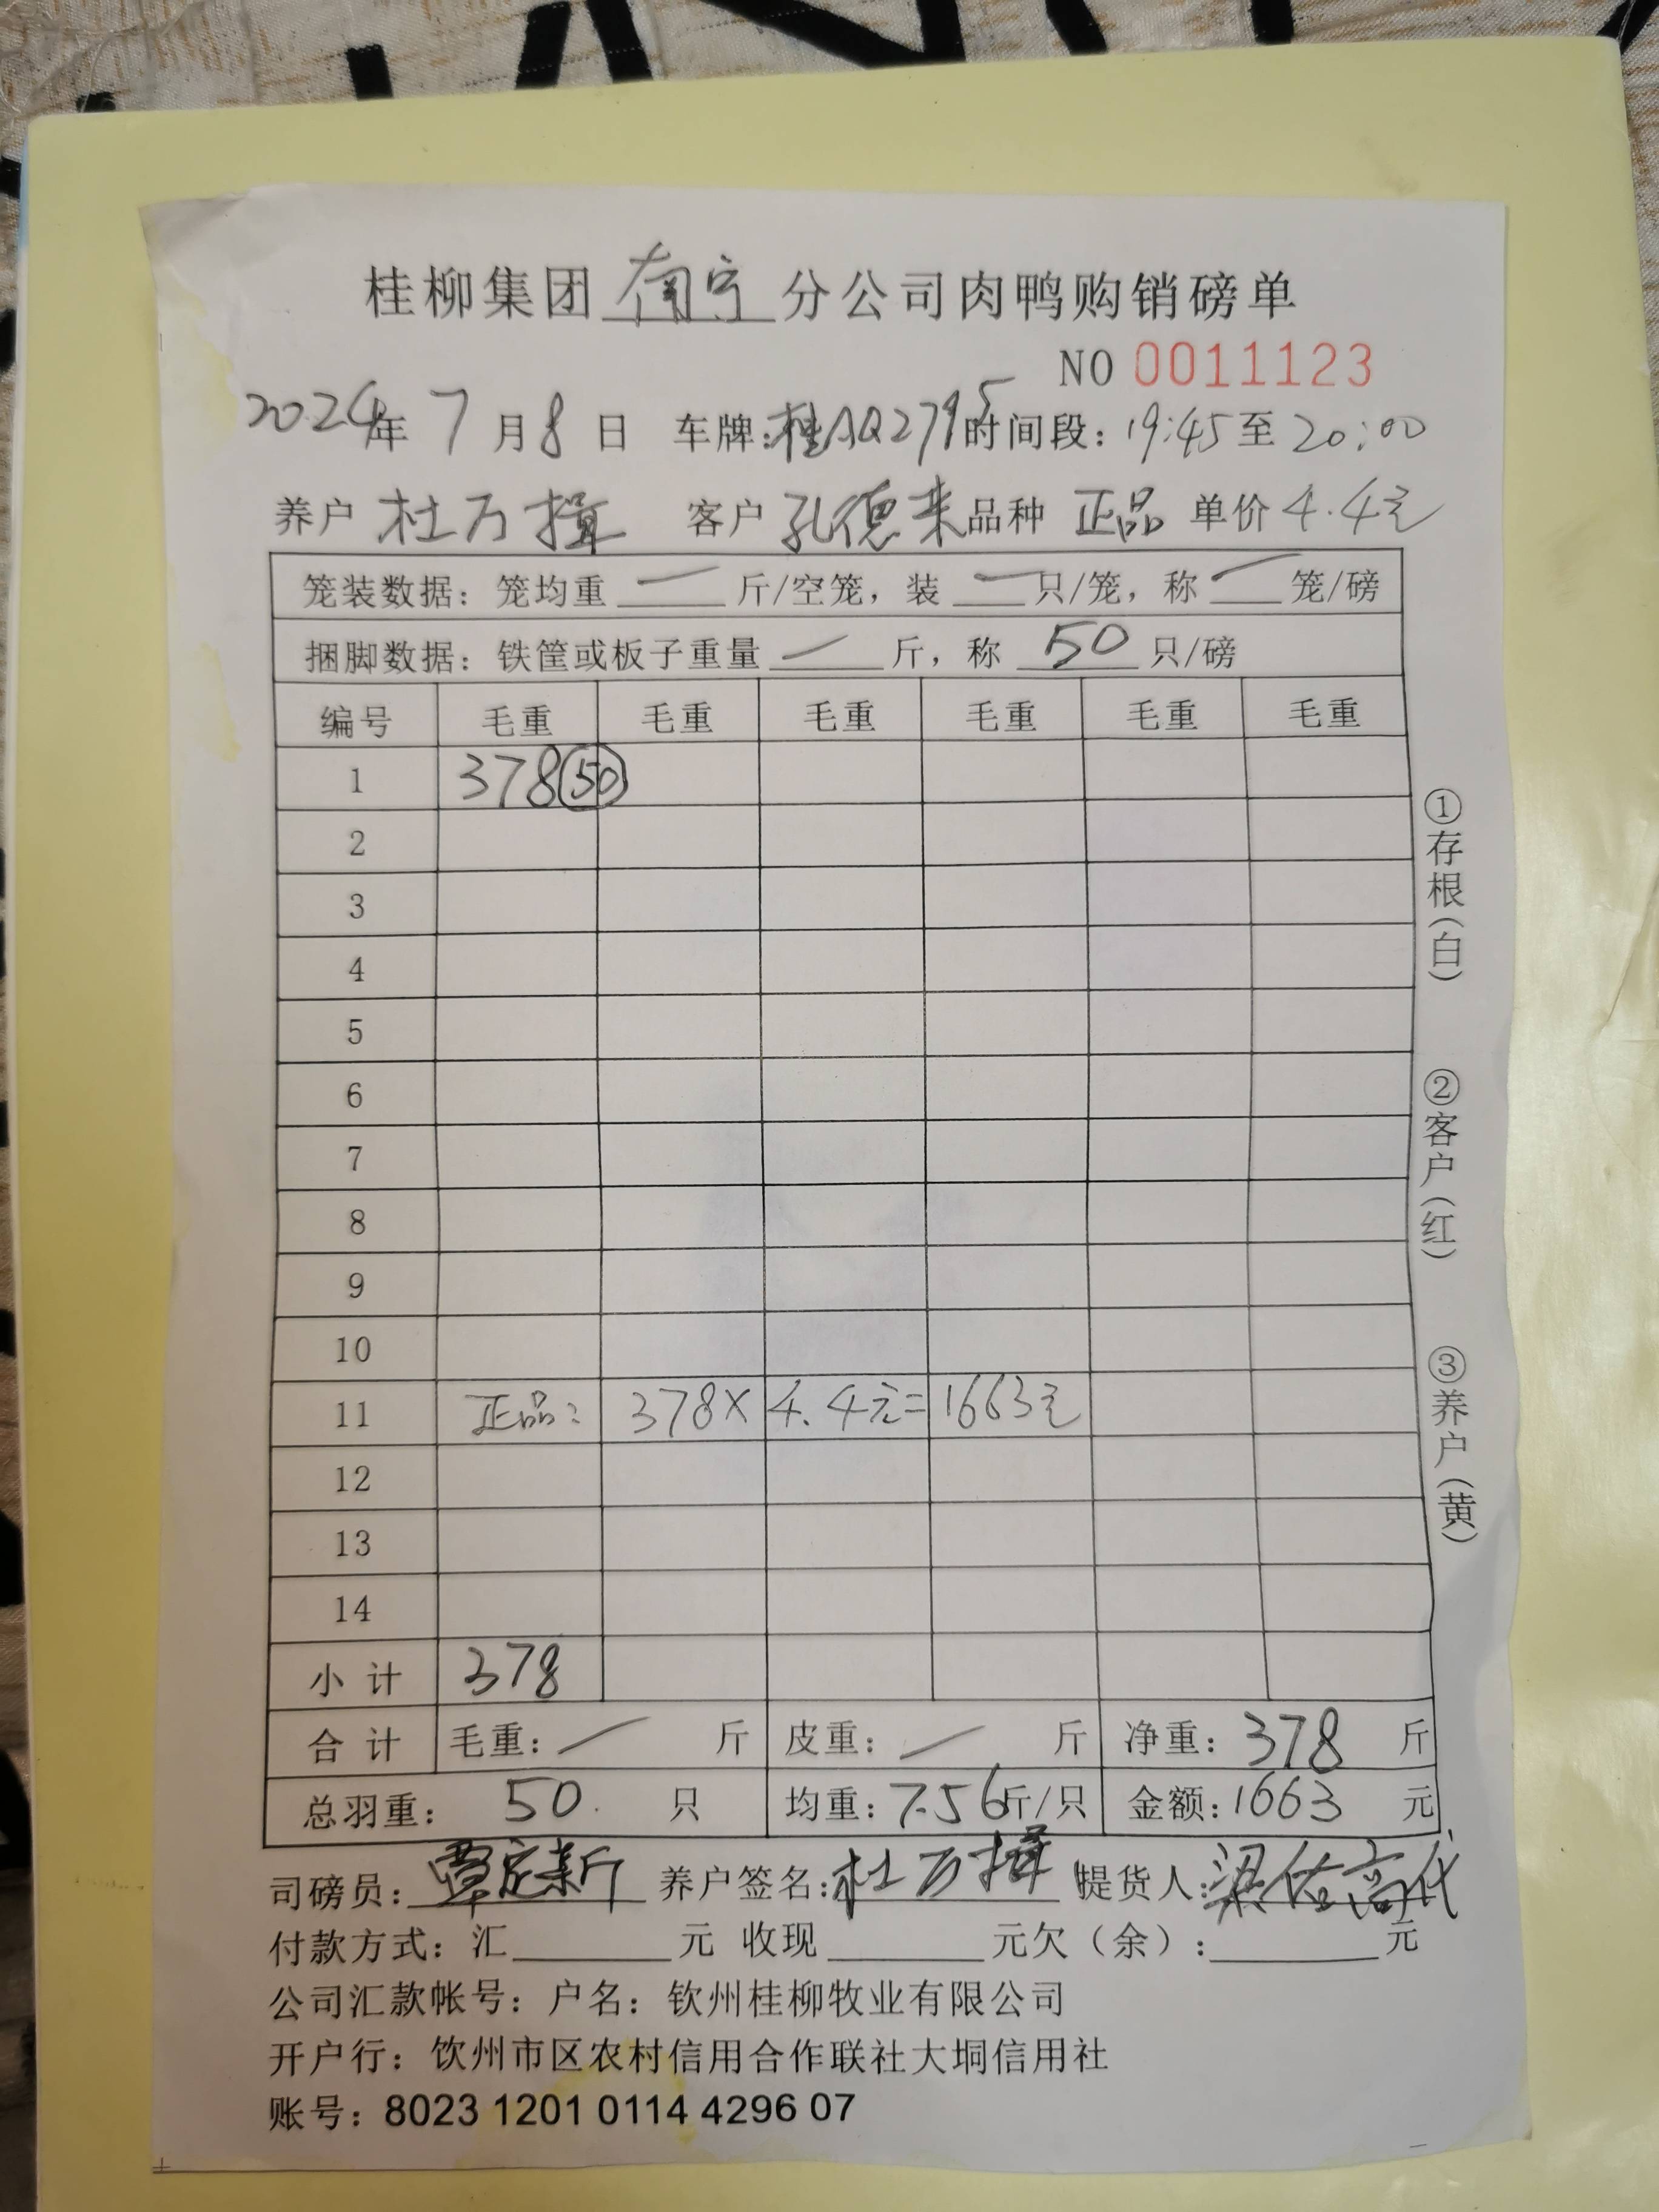 桂柳集团 南宁 分公司肉鸭购销磅单
NO 0011123
2024年 7 月 8 日 车牌:桂AQ2795 时间段：19:45 至 20:00
养户 杜万揖 客户 孔德来 品种 正品 单价 4.4元
笼装数据：笼均重 — 斤/空笼，装 — 只/笼，称 — 笼/磅
捆脚数据：铁筐或板子重量 — 斤，称 50 只/磅
编号 毛重 毛重 毛重 毛重 毛重 毛重
1 378 50
2
3
4
5
6
7
8
9
10
11 正品： 378× 4.4元= 1663元
12
13
14
小计 378
合计 毛重： — 斤 皮重： — 斤 净重：378 斤
总羽重： 50. 只 均重：7.56斤/只 金额：1663 元
司磅员：覃定新 养户签名：杜万揖 提货人：梁佑高代
付款方式：汇______元 收现______元欠（余）：______元
公司汇款帐号：户名：钦州桂柳牧业有限公司
开户行：钦州市区农村信用合作联社大垌信用社
账号：8023 1201 0114 4296 07
①存根（白）
②客户（红）
③养户（黄）